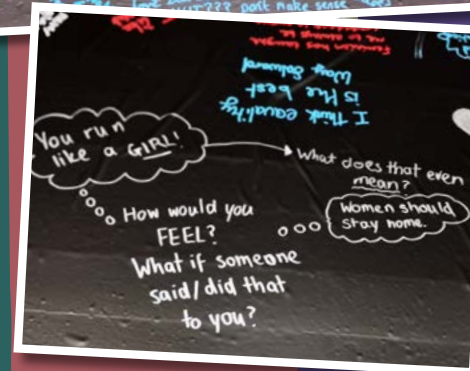 ??? dont make sense
Feminism has taught
me to always be
I think equality
is the best
Way forward
You run
like a GIRL!
What does that even
mean?
How would you
FEEL?
What if someone
said/did that
to you?
Women should
stay home.